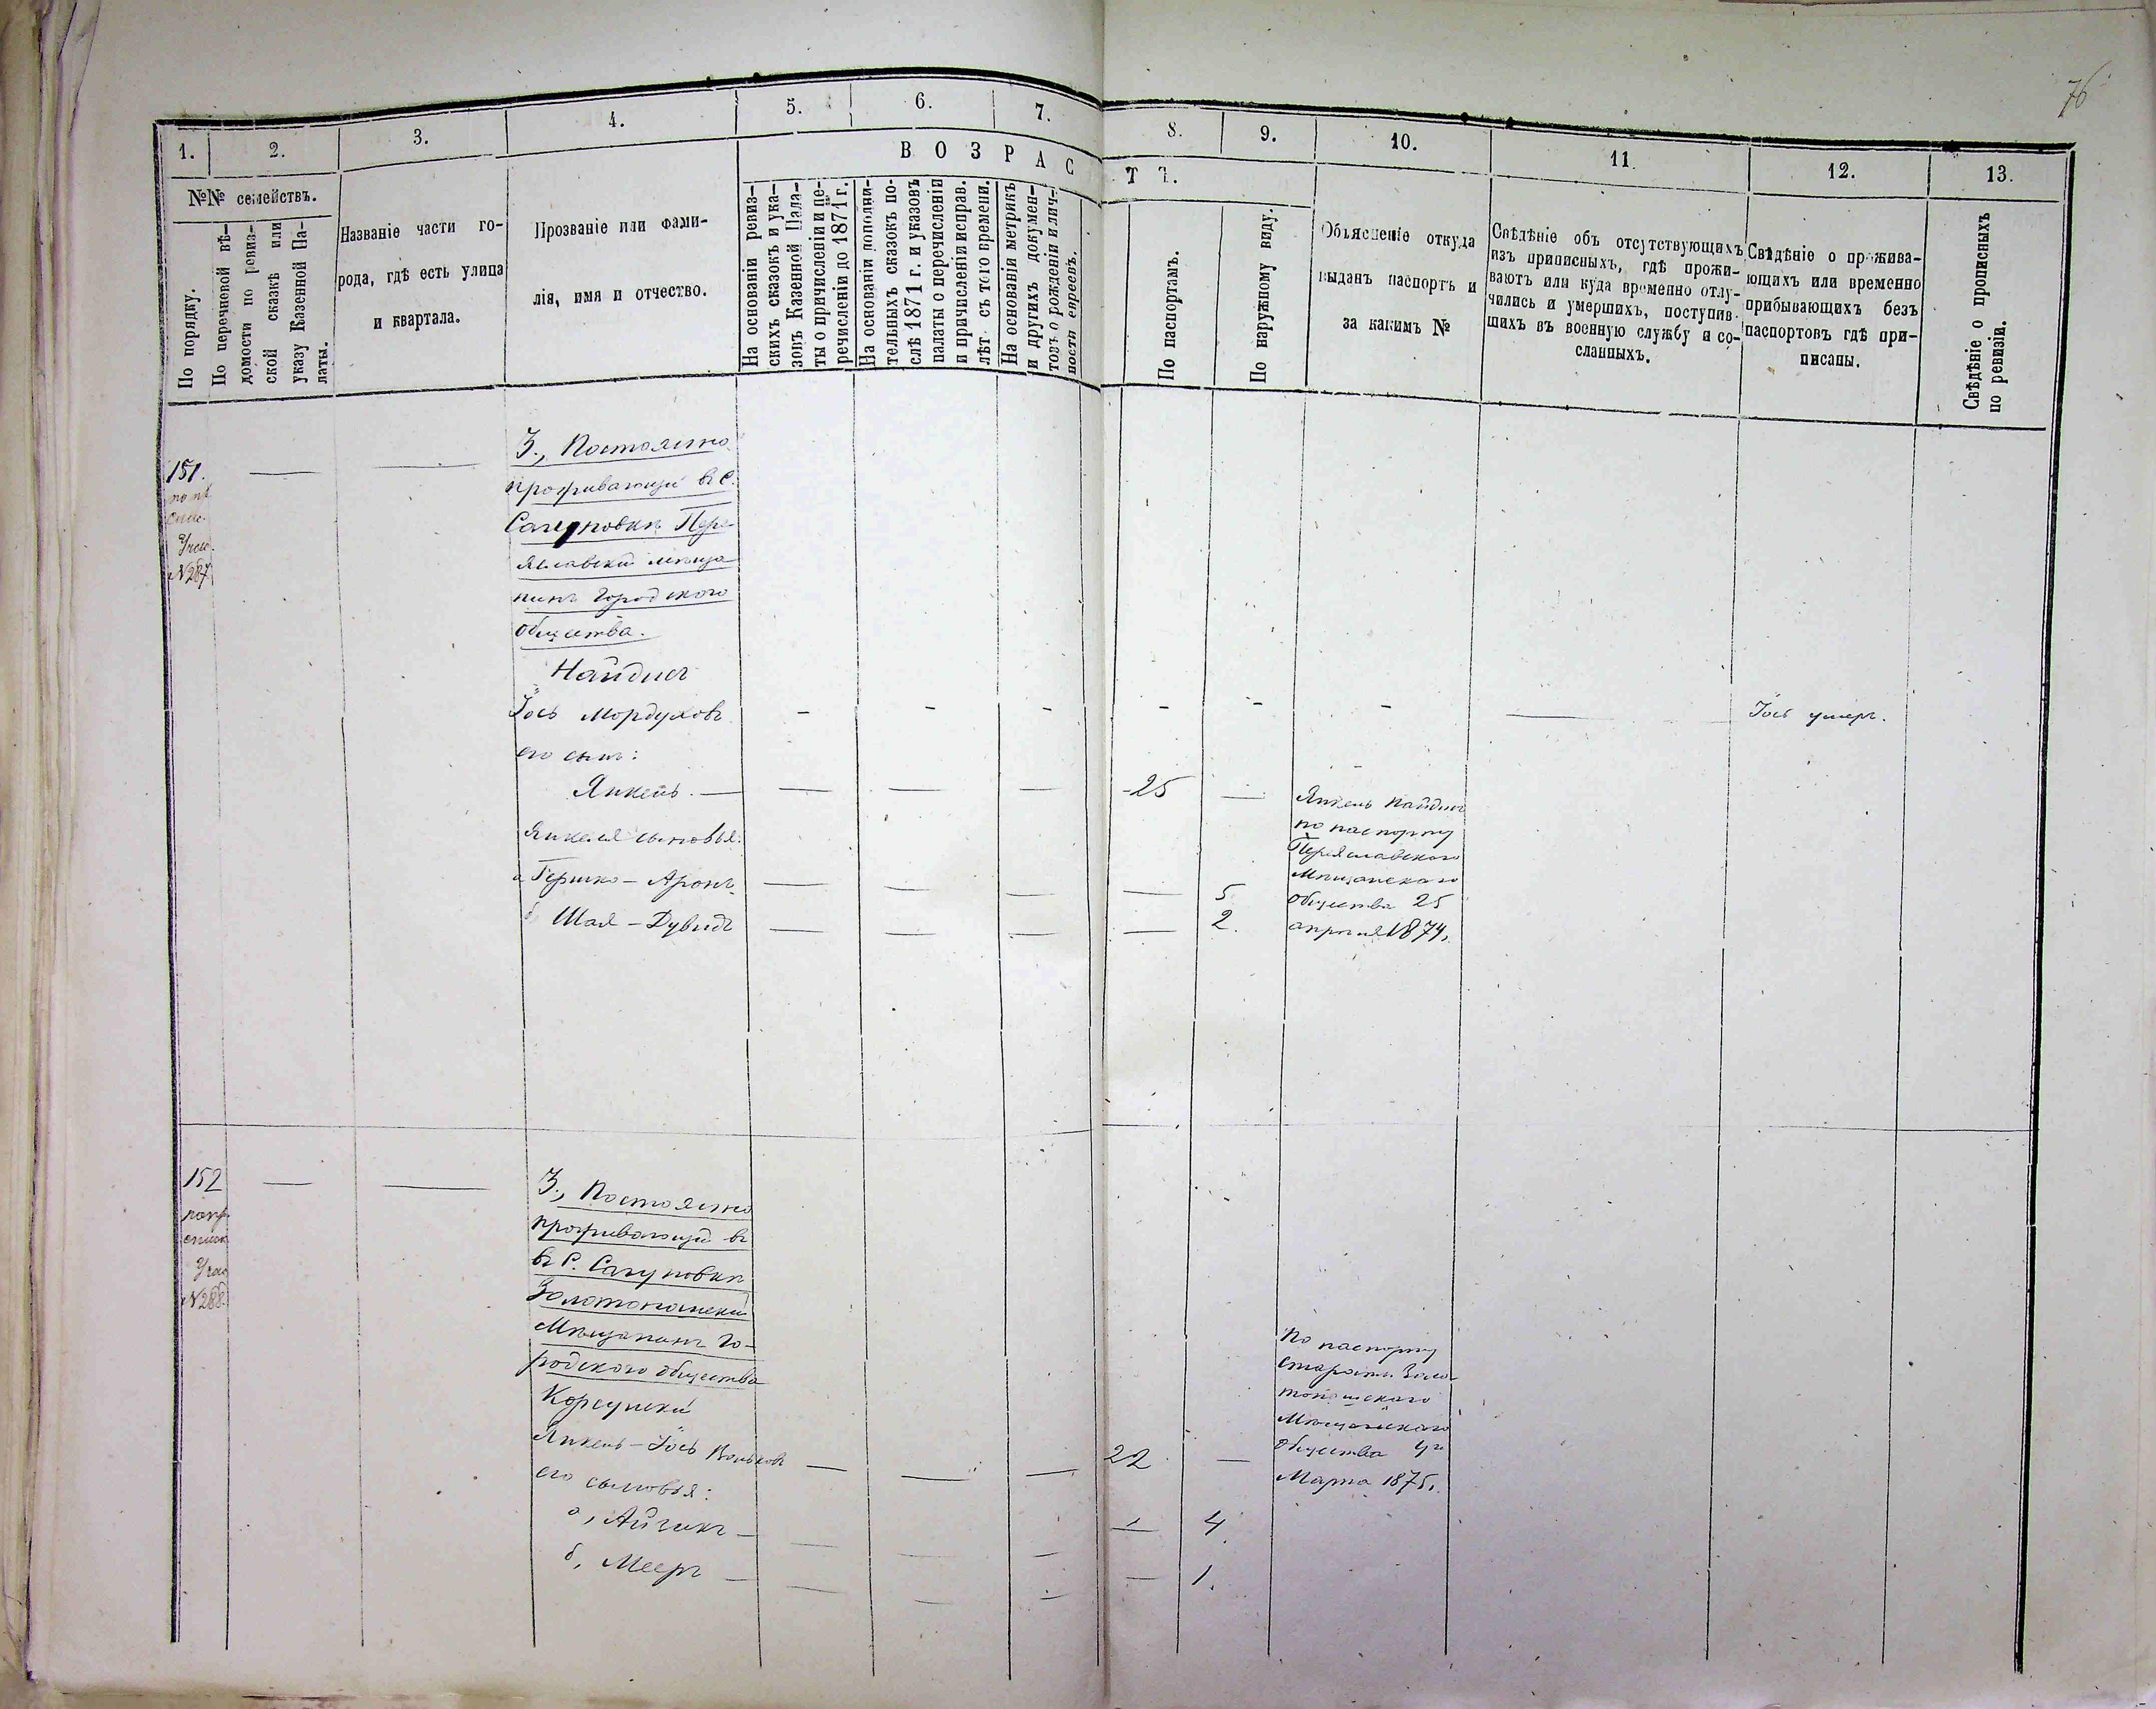 76
1.
2.
3.
4.
5.
6.
7.
8.
9.
10.
11.
12.
13.
В О З Р А С Т Ъ.
№№ семействъ.
По порядку.
По перечневой вѣ-
домости по ревиз-
ской сказкѣ или
указу Казенной Па-
латы.
Названіе части го-
рода, гдѣ есть улица
и квартала.
Прозваніе или фами-
лія, имя и отчество.
На основаніи ревиз-
скихъ сказокъ и ука-
зовъ Казенной Пала-
ты о причисленіи и пе-
речисленіи до 1871 г.
На основаніи дополни-
тельныхъ сказокъ по-
слѣ 1871 г. и указовъ
палаты о перечисленіи
и причисленіи исправ.
лѣт съ того времени.
На основаніи метрикъ
и другихъ докумен-
товъ о рожденіи и лич-
ности евреевъ.
По паспортамъ.
По наружному виду.
Объясненіе откуда
выданъ паспортъ и
за какимъ №
Свѣдѣніе объ отсутствующихъ
изъ приписныхъ, гдѣ прожи-
ваютъ или куда временно отлу-
чились и умершихъ, поступив-
шихъ въ военную службу и со-
сланныхъ.
Свѣдѣніе о прожива-
ющихъ или временно
прибывающихъ безъ
паспортовъ гдѣ при-
писаны.
Свѣдѣніе о прописныхъ
по ревизіи.
151.
Учас.
№287
3., Постоянно
проживающій въ С.
Сагуновкѣ Пере-
яславскій мѣща-
нинъ Городского
общества.
Найдисъ
Іось Мордуховъ - - - - - - Іось умеръ.
его сынъ:
Янкель. — 25 —
Янкеля сыновья:
а Гершко - Аронъ 5
б Шая - Дувидъ 2.
Янкель Найдисъ
по паспорту
Переяславского
Мѣщанского
общества 25
апрѣля 1874,
152
Учас
№288.
3., Постоянно
проживающій въ
въ С. Сагуновкѣ
Золотоношскій
Мѣщанинъ Го-
родского общества
Корсунскій
Янкель - Іось Вольковъ — 22 —
его сыновья:
а, Айзикъ — 4.
б, Мееръ — 1.
По паспорту
старосты Золо-
тоношского
Мѣщанского
общества 4го
Марта 1875,